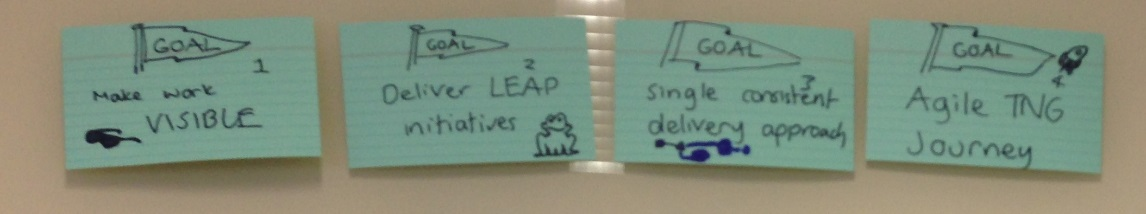 GOAL
1
Make work
VISIBLE
GOAL
2
Deliver LEAP
initiatives
GOAL
3
single consistent
delivery approach
GOAL
4
Agile TNG
Journey